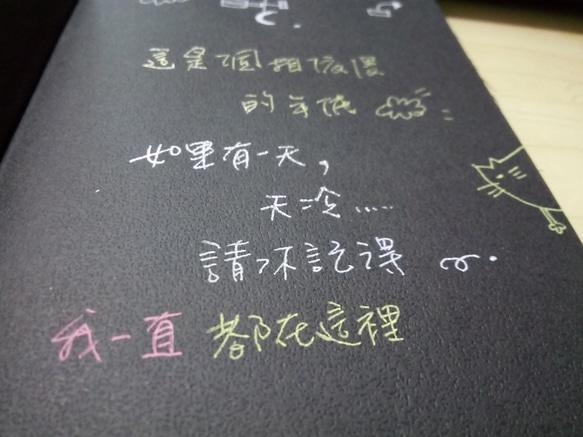 這是個相依偎
的年代
如果有一天，
天冷.....
請不記得
我一直都在這裡